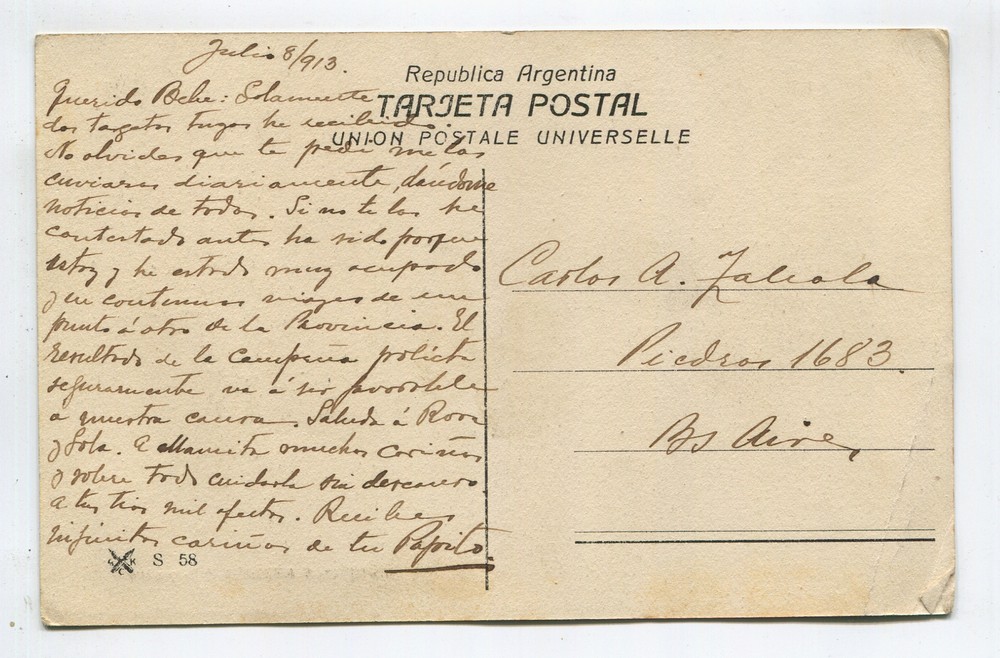 Julio 8/913.
Republica Argentina
TARJETA POSTAL
UNION POSTALE UNIVERSELLE
Querido Bebe: Solamente
dos targetas tuyas he recibido.
No olvides que te pedi me las
enviaras diariamente, dándome
noticias de todos. Si no te las he
contestado antes ha sido porque
estoy y he estado muy ocupado
y en contenuos viajes de un
punto á otro de la Provincia. El
resultado de la campaña política
seguramente va á ser favorable
a nuestra causa. Saluda á Rosa
y Lola. A Mamita muchos cariños
y sobre todo cuidarla sin descanso.
A tus tios mil afectos. Recibe
infinitos cariños de tu Papito
S 58
Carlos A.
Piedras 1683.
Bs Aires